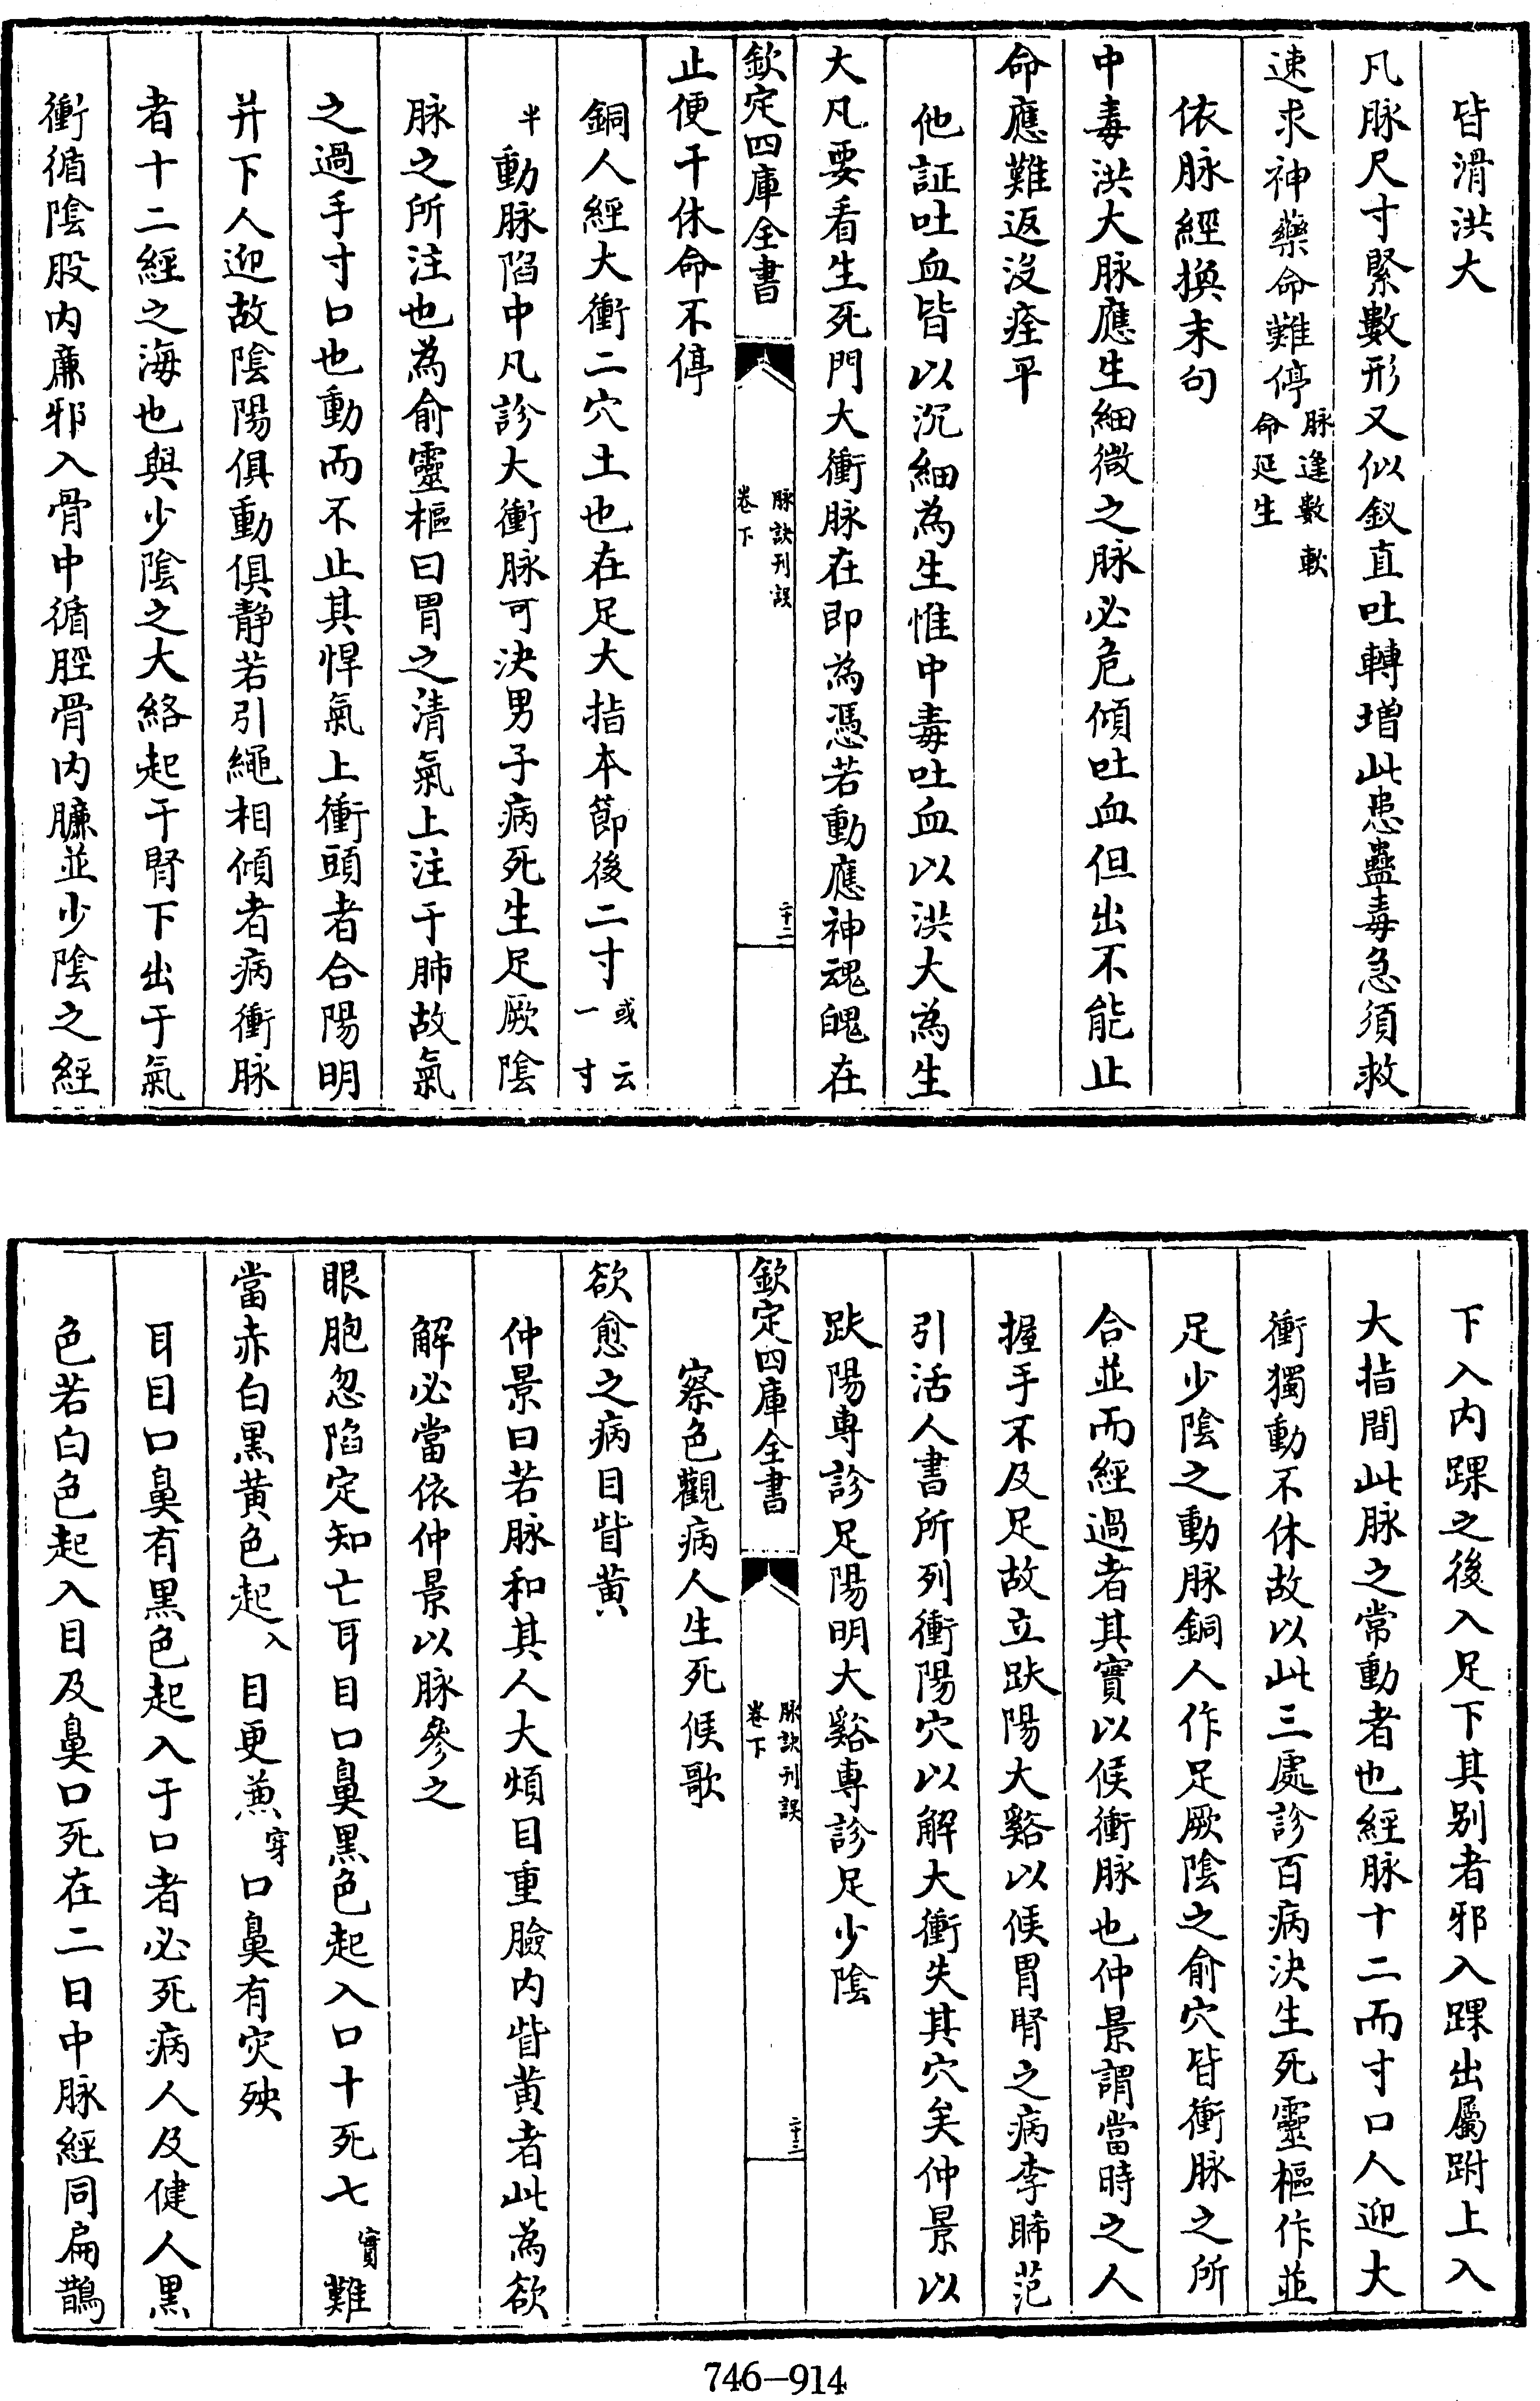 皆滑洪大
凡脉尺寸緊數形又似釵直吐轉増此患蠱毒急須救
速求神藥命難停脉逢數軟命延生
依脉經換末句
中毒洪大脉應生細微之脉必危傾吐血但出不能止
命應難返没痊平
他証吐血皆以沉細為生惟中毒吐血以洪大為生
大凡要看生死門大衝脉在即為憑若動應神魂魄在
欽定四庫全書 脉訣刊誤 卷下 二十二
止便干休命不停
銅人經大衝二穴土也在足大指本節後二寸或云一寸
半動脉陷中凡診大衝脉可決男子病死生足厥陰
脉之所注也為俞靈樞曰胃之清氣上注于肺故氣
之過手寸口也動而不止其悍氣上衝頭者合陽明
并下人迎故陰陽俱動俱静若引繩相傾者病衝脉
者十二經之海也與少陰之大絡起干腎下出于氣
衝循陰股内廉邪入骨中循脛骨内臁並少陰之經
下入内踝之後入足下其别者邪入踝出屬跗上入
大指間此脉之常動者也經脉十二而寸口人迎大
衝獨動不休故以此三處診百病決生死靈樞作並
足少陰之動脉銅人作足厥陰之俞穴皆衝脉之所
合並而經過者其實以候衝脉也仲景謂當時之人
握手不及足故立趺陽大谿以候胃腎之病李晞范
引活人書所列衝陽穴以解大衝失其穴矣仲景以
趺陽専診足陽明大谿専診足少陰
欽定四庫全書 脉訣刊誤 卷下 二十三
察色觀病人生死候歌
欲愈之病目眥黄
仲景曰若脉和其人大煩目重臉内眥黄者此為欲
解必當依仲景以脉參之
眼胞忽陷定知亡耳目口鼻黒色起入口十死七實難
當赤白黒黄色起入目更兼穿口鼻有灾殃
耳目口鼻有黒色起入于口者必死病人及健人黒
色若白色起入目及鼻口死在二日中脉經同扁鵲
746-914